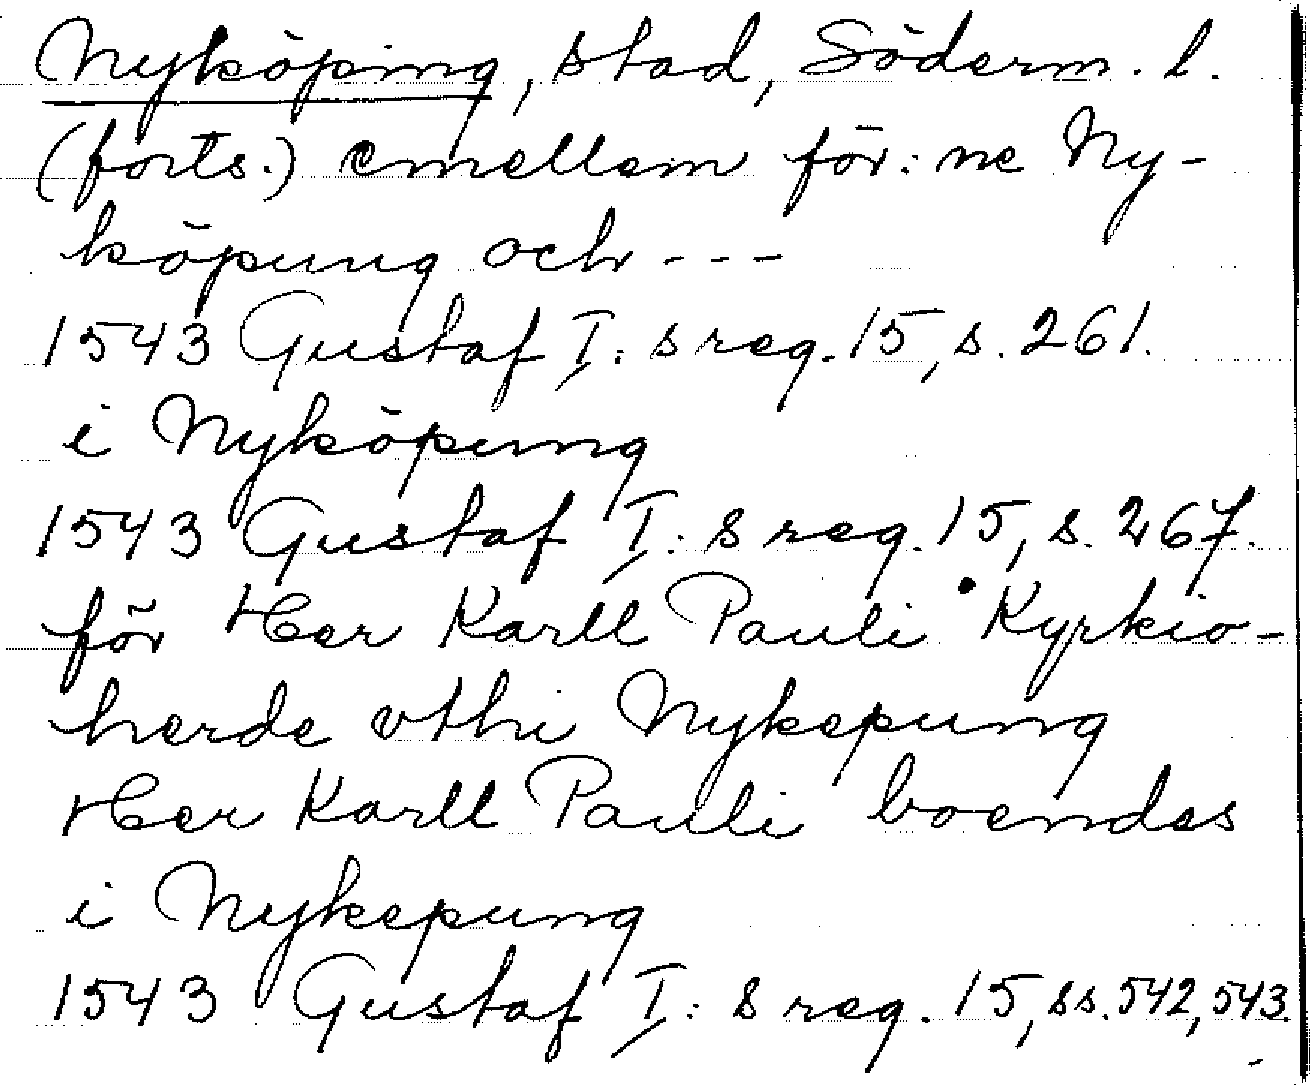 Nyköping, stad, Söderm. l.
(forts.) emellem för: ne Ny-
köpung och ---
1543 Gustaf I: s reg. 15, s. 261.
i Nyköpung
1543 Gustaf I: s reg. 15, s. 267.
för Her Karll Pauli Kyrkio-
herde vthi Nykepung
Her Karll Pauli boendes
i Nykepung
1543 Gustaf I: s reg. 15, ss. 542, 543.